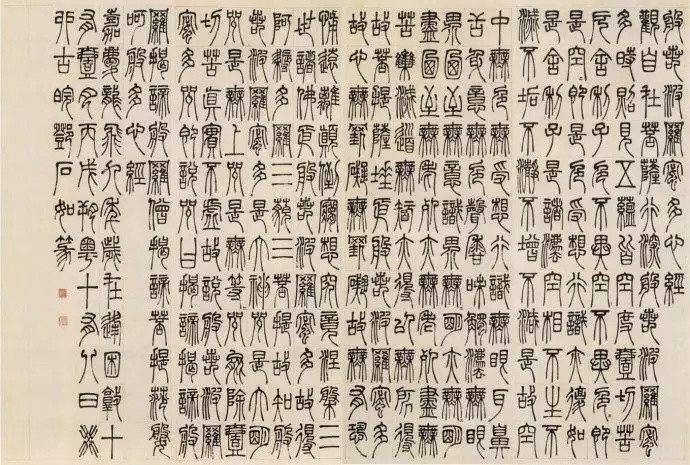 般若波羅蜜多心經
觀自在菩薩行深般若波羅蜜
多時照見五蘊皆空度壹切苦
厄舍利子色不異空空不異色色即
是空空即是色受想行識亦復如
是舍利子是諸法空相不生不
滅不垢不淨不增不減是故空
中無色無受想行識無眼耳鼻
舌身意無色聲香味觸法無眼
界乃至無意識界無無明亦無明
盡乃至無老死亦無老死盡無
苦集滅道無智亦得以無所得
故菩提薩埵依般若波羅蜜多
故心無罣礙無罣礙故無有恐
怖遠離顛倒夢想究竟涅槃三
世諸佛依般若波羅蜜多故得
阿耨多羅三藐三菩提故知般
若波羅蜜多是大神咒是大明
咒是無上咒是無等等咒能除壹
切苦真實不虛故說般若波羅
蜜多咒即說咒曰揭諦揭諦般
羅揭諦般羅僧揭諦菩提薩婆
呵般若多心經
嘉慶龍飛九年歲在逢困敦十
有壹月丙戌朔粵十有八日癸
卯古皖鄧石如篆